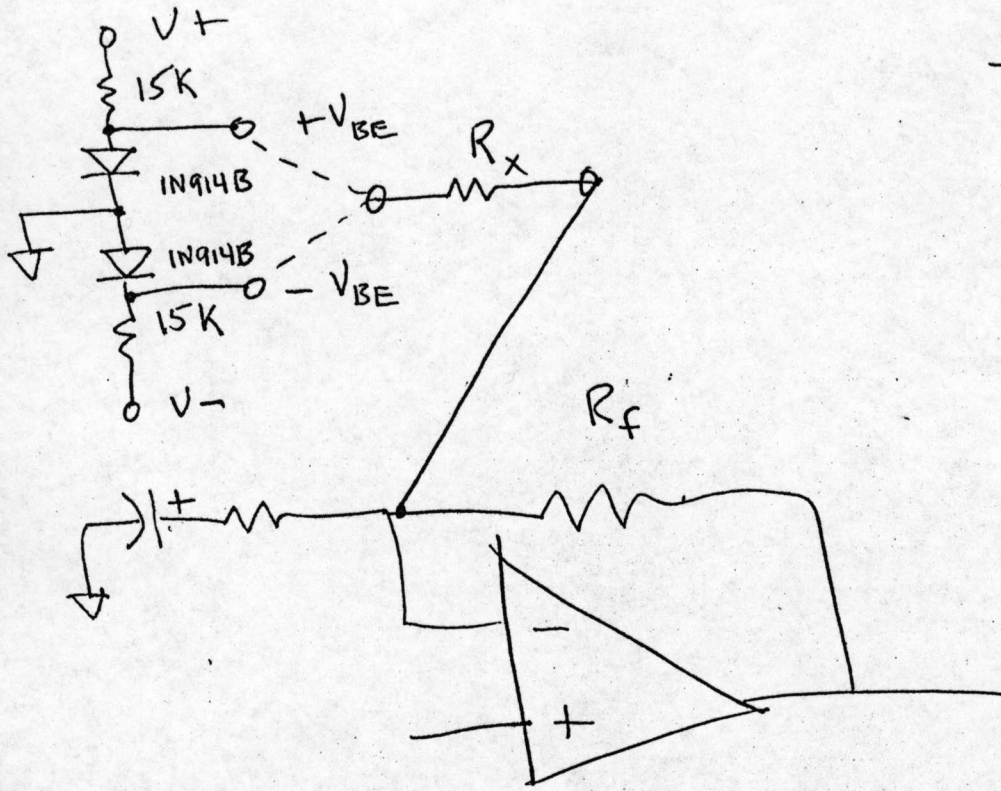 V+
15K
+VBE
Rx
1N914B
1N914B
- VBE
15K
V-
Rf
+
-
+